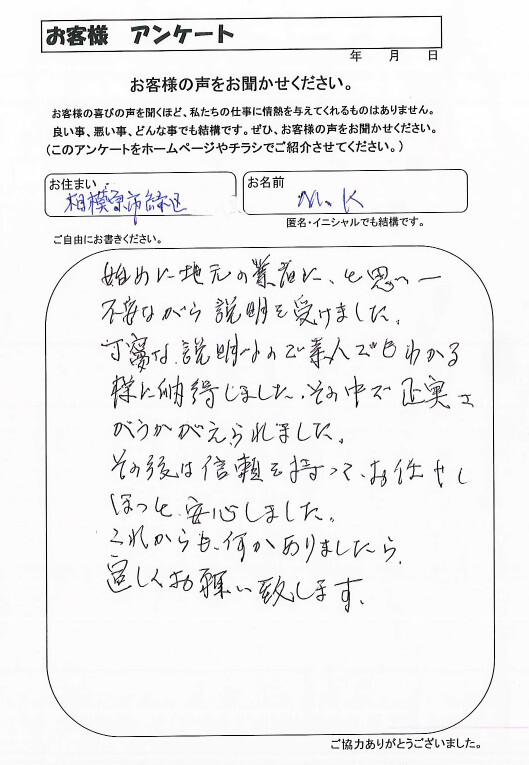 お客様 アンケート
年 月 日
お客様の声をお聞かせください。
お客様の喜びの声を聞くほど、私たちの仕事に情熱を与えてくれるものはありません。
良い事、悪い事、どんな事でも結構です。ぜひ、お客様の声をお聞かせください。
(このアンケートをホームページやチラシでご紹介させてください。)
お住まい
相模原市緑区
お名前
M.K
匿名・イニシャルでも結構です。
ご自由にお書きください。
始めに地元の業者に、と思い
不安ながら説明を受けました。
丁寧な説明なので素人でもわかる
様に納得しました。その中で正実さ
がうかがえられました。
その後は信頼を持って、お任せし
ほっと安心しました。
これからも、何かありましたら、
宜しくお願い致します。
ご協力ありがとうございました。